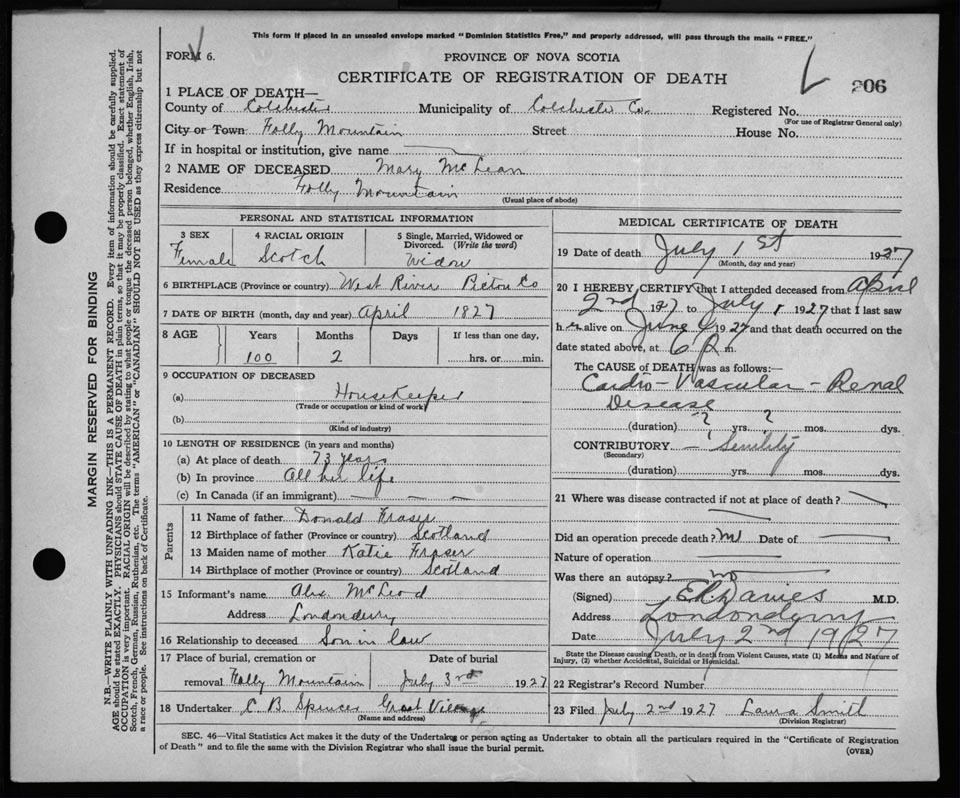 This form if placed in an unsealed envelope marked "Dominion Statistics Free," and properly addressed, will pass through the mails "FREE."
FORM 6.
PROVINCE OF NOVA SCOTIA
CERTIFICATE OF REGISTRATION OF DEATH
206
1 PLACE OF DEATH—
County of Colchester Municipality of Colchester Co. Registered No.
(For use of Registrar General only)
City or Town Folly Mountain Street House No.
If in hospital or institution, give name
2 NAME OF DECEASED Mary McLean
Residence Folly Mountain
(Usual place of abode)
PERSONAL AND STATISTICAL INFORMATION
3 SEX 4 RACIAL ORIGIN 5 Single, Married, Widowed or Divorced. (Write the word)
Female Scotch Widow
6 BIRTHPLACE (Province or country) West River Pictou Co
7 DATE OF BIRTH (month, day and year) April 1827
8 AGE Years Months Days If less than one day,
100 2 hrs. or min.
9 OCCUPATION OF DECEASED
(a) Housekeeper
(Trade or occupation or kind of work)
(b)
(Kind of industry)
10 LENGTH OF RESIDENCE (in years and months)
(a) At place of death 73 years
(b) In province All her life
(c) In Canada (if an immigrant) — — —
Parents
11 Name of father Donald Fraser
12 Birthplace of father (Province or country) Scotland
13 Maiden name of mother Katie Fraser
14 Birthplace of mother (Province or country) Scotland
15 Informant's name Alex McLeod
Address Londonderry
16 Relationship to deceased Son in law
17 Place of burial, cremation or Date of burial
removal Folly Mountain July 3rd 1927
18 Undertaker C. B. Spencer Great Village
(Name and address)
MEDICAL CERTIFICATE OF DEATH
19 Date of death July 1st 1927
(Month, day and year)
20 I HEREBY CERTIFY that I attended deceased from April
2nd 1927 to July 1 1927 that I last saw
her alive on June 9 1927 and that death occurred on
date stated above, at 6 P.m.
The CAUSE OF DEATH was as follows:—
Cardio-Vascular-Renal
Disease
(duration) ? yrs. ? mos. dys.
CONTRIBUTORY — Senility
(Secondary)
(duration) yrs. mos. dys.
21 Where was disease contracted if not at place of death?
Did an operation precede death? no Date of
Nature of operation
Was there an autopsy? no
(Signed) E.R. Davies M.D.
Address Londonderry
Date July 2nd 1927
State the Disease causing Death, or in death from Violent Causes, state (1) Means and Nature of
Injury, (2) whether Accidental, Suicidal or Homicidal.
22 Registrar's Record Number
23 Filed July 2nd 1927 Laura Smith
(Division Registrar)
SEC. 46—Vital Statistics Act makes it the duty of the Undertaker or person acting as Undertaker to obtain all the particulars required in the "Certificate of Registration
of Death" and to file the same with the Division Registrar who shall issue the burial permit.
(OVER)
MARGIN RESERVED FOR BINDING
N.B.—WRITE PLAINLY WITH UNFADING INK—THIS IS A PERMANENT RECORD. Every item of information should be carefully supplied.
AGE should be stated EXACTLY. PHYSICIANS should STATE CAUSE OF DEATH in plain terms, so that it may be properly classified. Exact statement of
OCCUPATION is very important. RACIAL ORIGIN will be described by stating to what people tongue the deceased person belonged, whether English, Irish,
Scotch, French, German, Russian, Ruthenian, etc. The terms "AMERICAN" or "CANADIAN" SHOULD NOT BE USED as they express citizenship but not
a race or people. See instructions on back of Certificate.